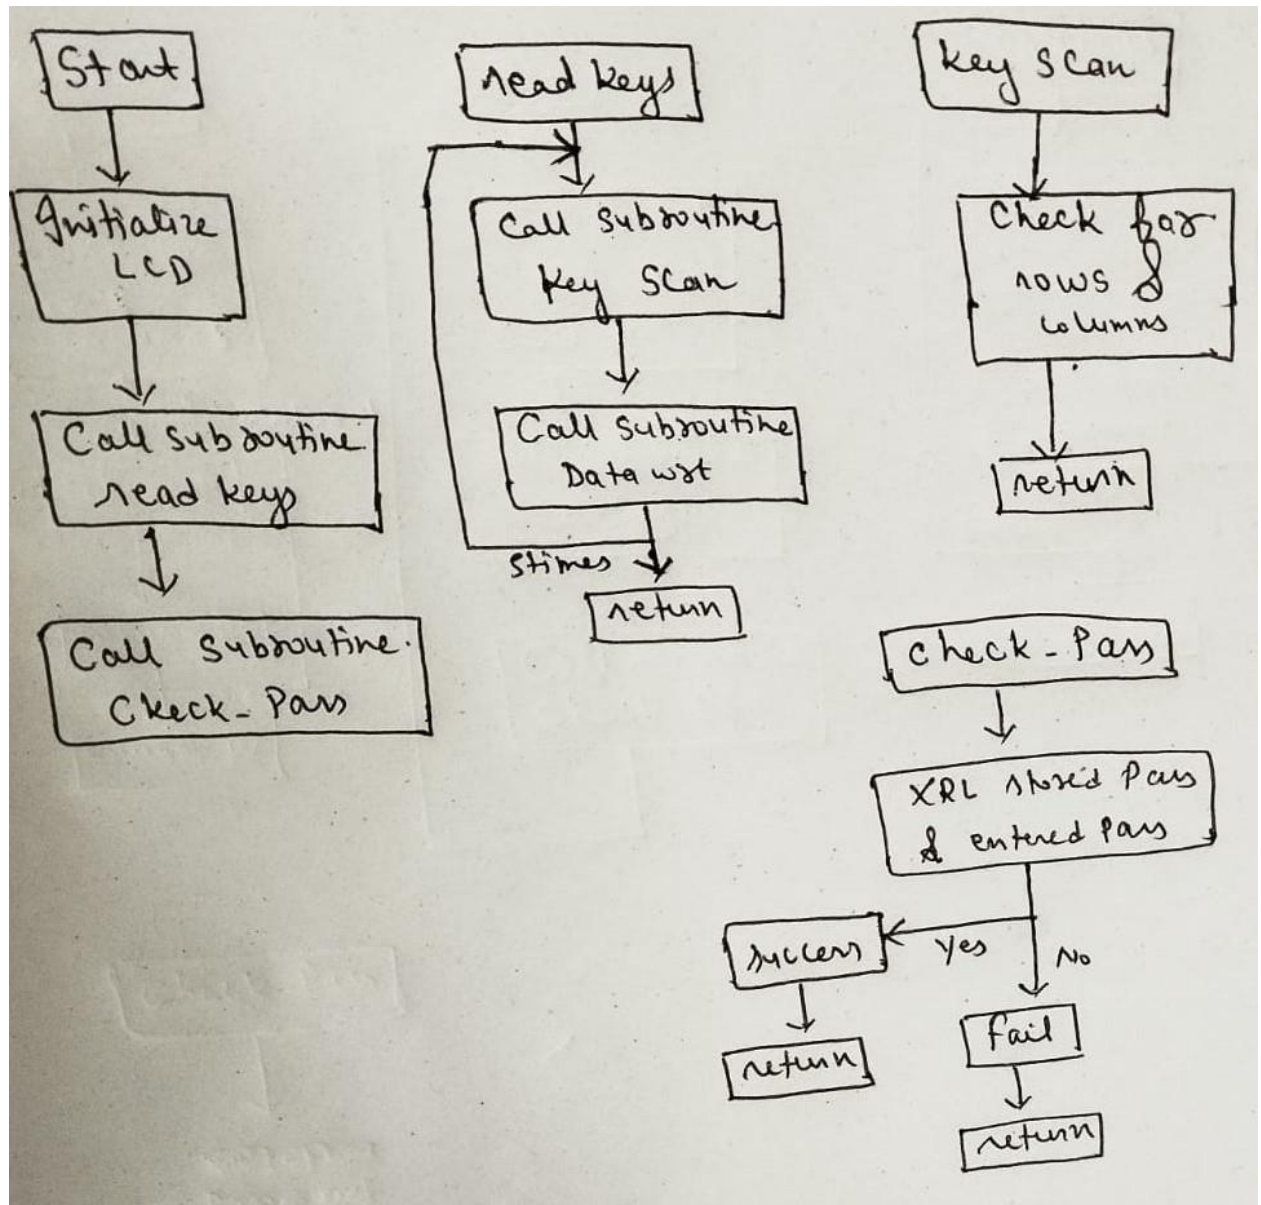 Start
Initialize
LCD
Call subroutine
read keys
Call subroutine.
Check_Pass
read keys
Call subroutine
key scan
Call subroutine
Data wrt
5times
return
key scan
Check for
rows &
columns
return
check_Pass
XRL stored Pass
& entered pass
yes
No
success
return
fail
return